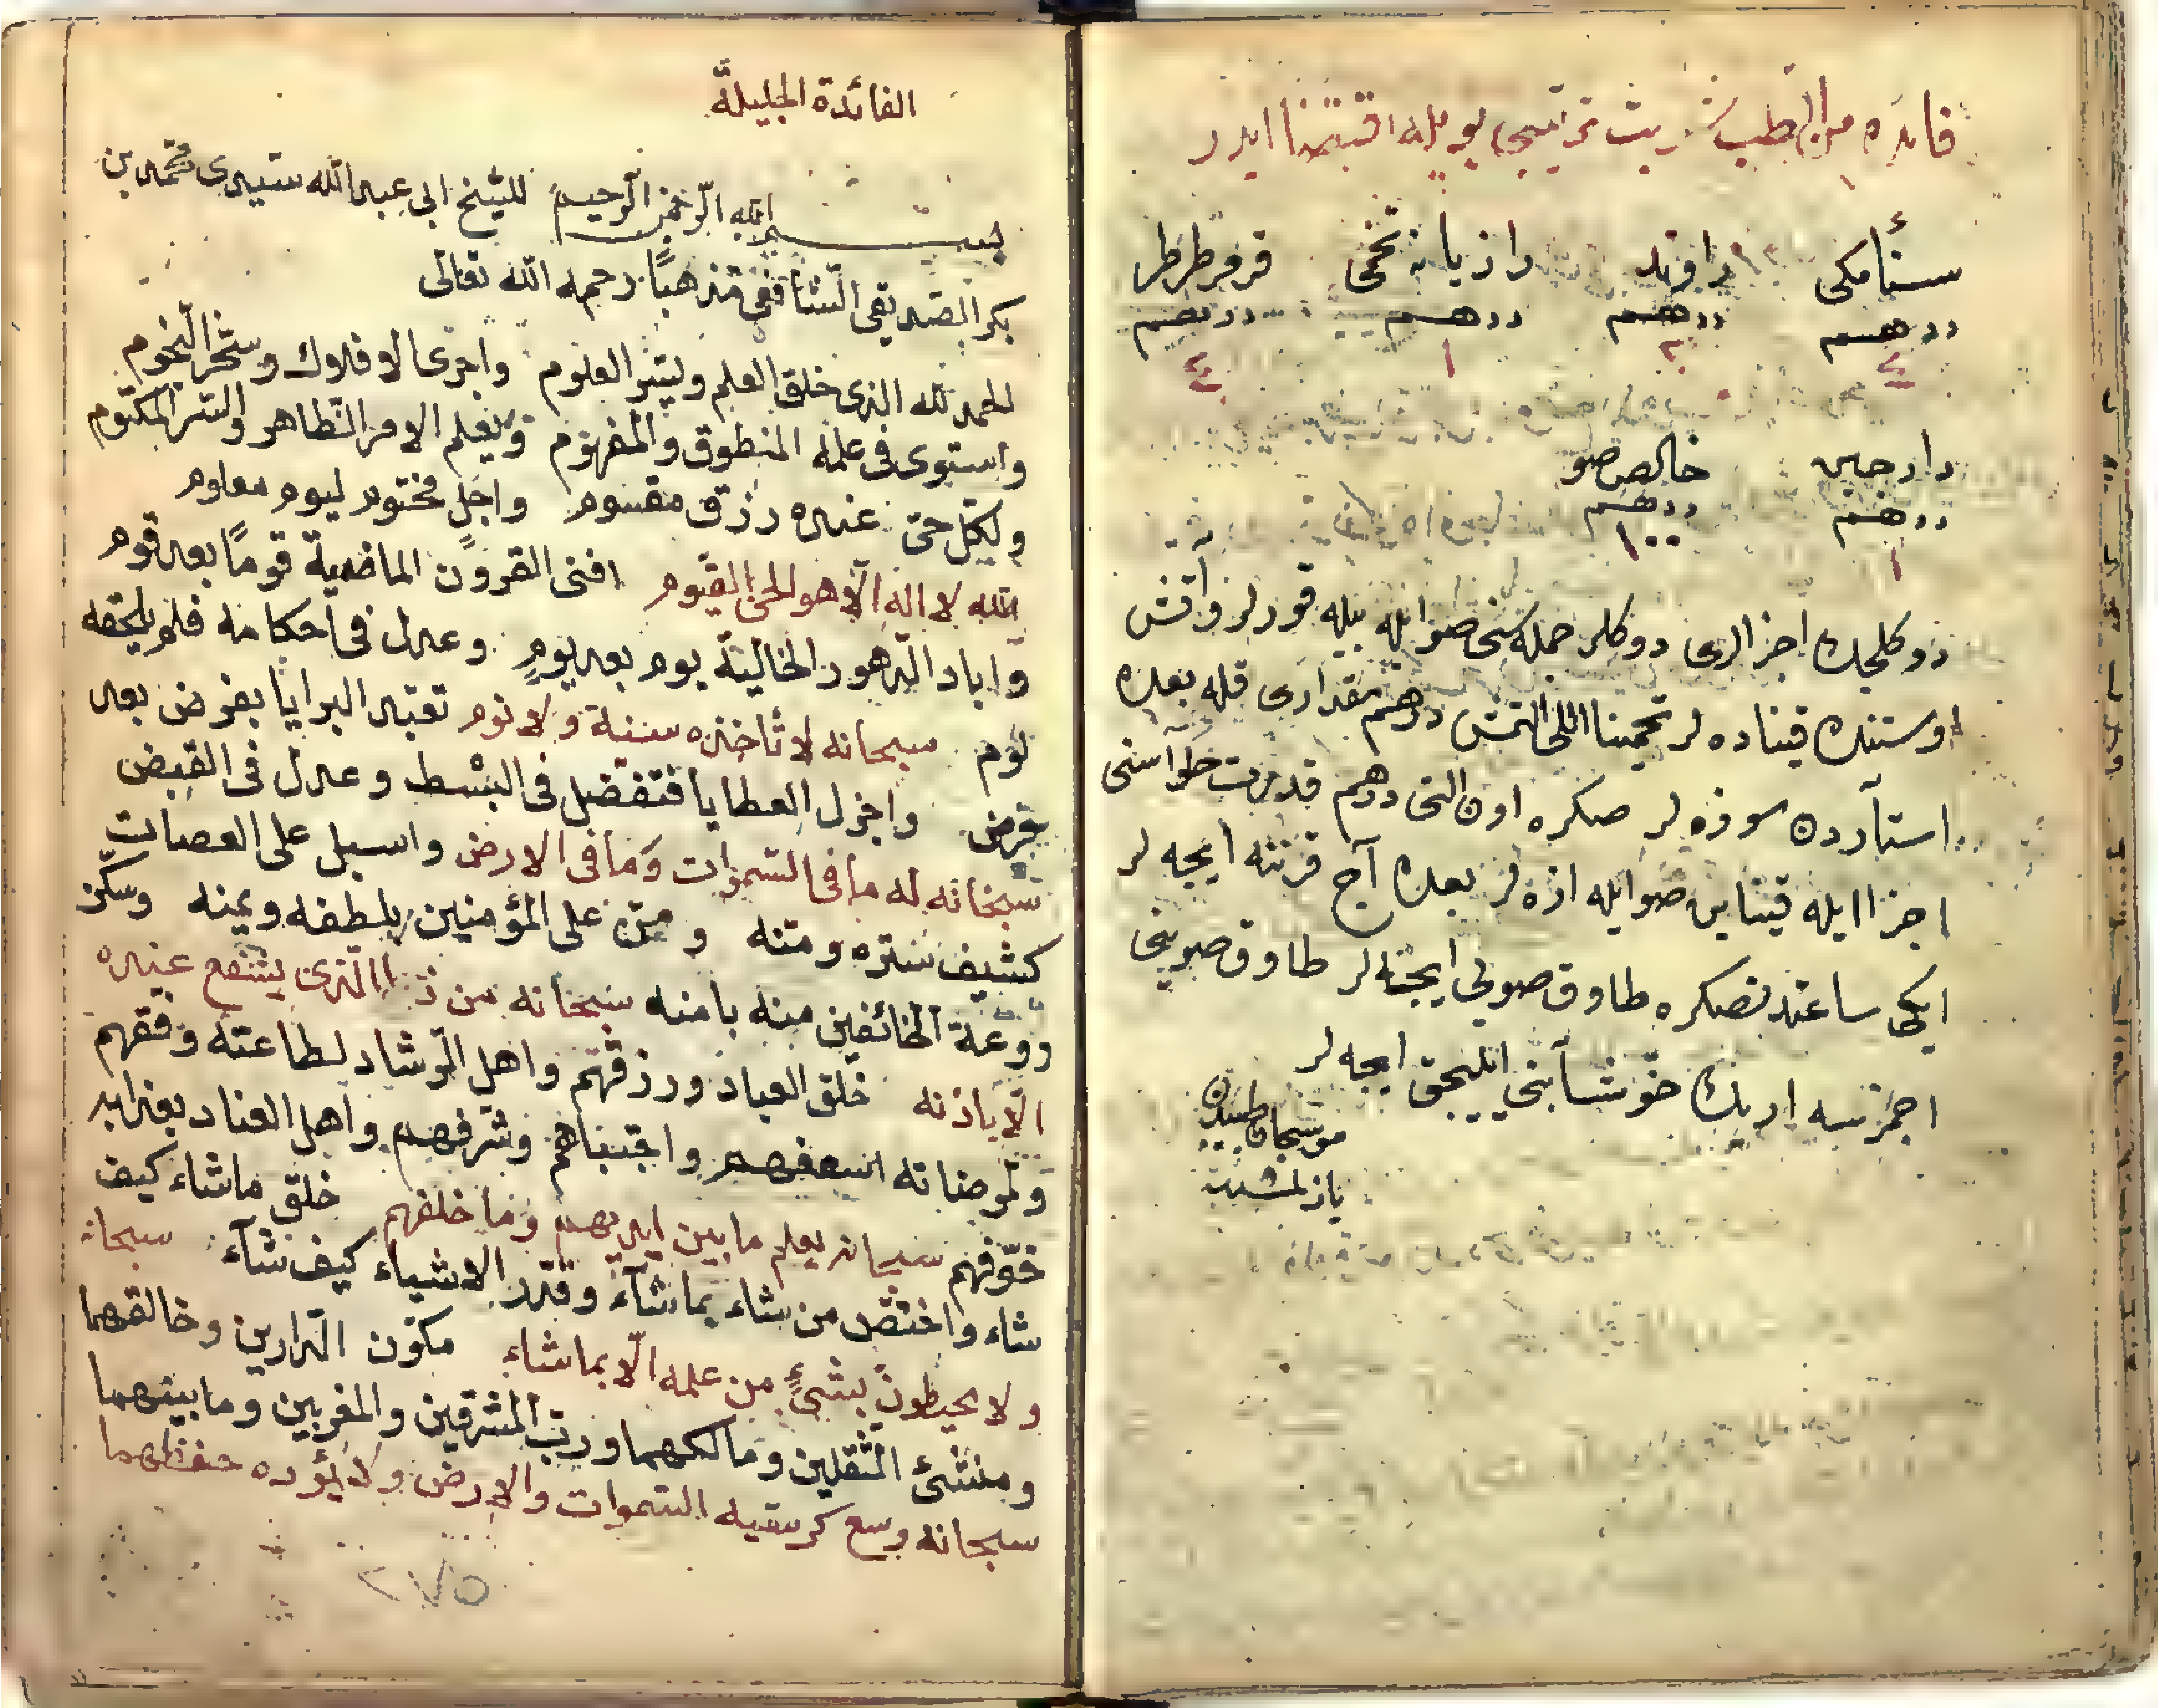 فايده من الطب شربت ترتيبى بويله اقتضا ايدر
سنامكى راوند رازيانه تخمى قرفرطرطر
درهم درهم درهم درهم
٤ ٢ ١ ٤
دارجين خالص صو
درهم درهم
١ ١٠٠
دوكلجك اجزالرى دوكلر جمله سنى صو ايله بيله قورلر وآتش
اوستنده قيناده لر تخمينا اللى التمش درهم مقدارى قله بعده
استآردن سوزه لر صكره اون التى درهم قدرت حلوآسنى
اجزا ايله قيناين صو ايله ازه لر بعده آج قرننه ايچه لر
ايكى ساعتدنصكره طاوق صويى ايچه لر طاوق صوينى
اجمزسه اريك خوشآبنى ايلىجق ايچه لر
يازلمشدر
الفائدة الجليلة
بسم الله الرحمن الرحيم للشيخ ابى عبد الله سيدى محمد بن
بكر الصديقى الشافعى مذهبًا رحمه الله تعالى
الحمد لله الذى خلق العلم ويسّر العلوم واجرى الافلاك وسخر النجوم
واستوى فى علمه المنطوق والمفهوم ويعلم الامر الظاهر والسر المكتوم
ولكل حىّ عنده رزق مقسوم واجل مختوم ليوم معلوم
الله لا اله الّا هو الحىّ القيوم افنى القرون الماضية قومًا بعد قوم
واباد الدهور الخالية يوم بعد يومٍ وعدل فى احكامه فلم يلحقه
لوم سبحانه لا تأخذه سنة ولا نوم تعبد البرايا بفرض بعد
فرض واجزل العطايا فتفضل فى البسط وعدل فى القبض
سبحانه له ما فى السموات وما فى الارض واسبل على العصات
كشيف ستره ومنه ومنّ على المؤمنين بلطفه ويمنه وسكّن
روعة الخائفين منه بامنه سبحانه من ذا الذى يشفع عنده
الّا باذنه خلق العباد ورزقهم واهل الرشاد لطاعته وفقهم
ولمرضاته اسعفهم واجتباهم وشرفهم واهل العناد بعذابه
خوّفهم سبحانه يعلم ما بين ايديهم وما خلفهم خلق ماشاء كيف
شاء واختص من شاء بما شآء وقدّر الاشياء كيف شآء سبحانه
ولا يحيطون بشىءٍ من علمه الّا بماشاء مكون الدارين وخالقهما
ومنشئ الثقلين ومالكهما ورب المشرقين والمغربين وما بينهما
سبحانه وسع كرسيه السموات والارض ولا يؤده حفظهما
٢٧٥